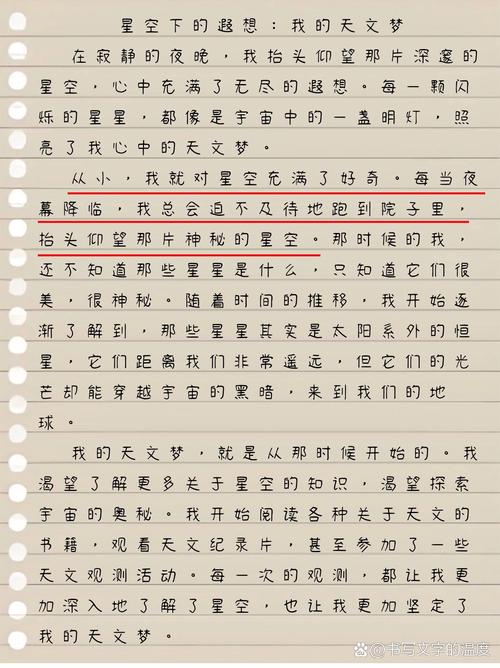 星空下的遐想：我的天文梦
在寂静的夜晚，我抬头仰望那片深邃的
星空，心中充满了无尽的遐想。每一颗闪
烁的星星，都像是宇宙中的一盏明灯，照
亮了我心中的天文梦。
从小，我就对星空充满了好奇。每当夜
幕降临，我总会迫不及待地跑到院子里，
抬头仰望那片神秘的星空。那时候的我，
还不知道那些星星是什么，只知道它们很
美，很神秘。随着时间的推移，我开始逐
渐了解到，那些星星其实是太阳系外的恒
星，它们距离我们非常遥远，但它们的光
芒却能穿越宇宙的黑暗，来到我们的地
球。
我的天文梦，就是从那时候开始的。我
渴望了解更多关于星空的知识，渴望探索
宇宙的奥秘。我开始阅读各种关于天文的
书籍，观看天文纪录片，甚至参加了一些
天文观测活动。每一次的观测，都让我更
加深入地了解了星空，也让我更加坚定了
我的天文梦。
书写文字的温度